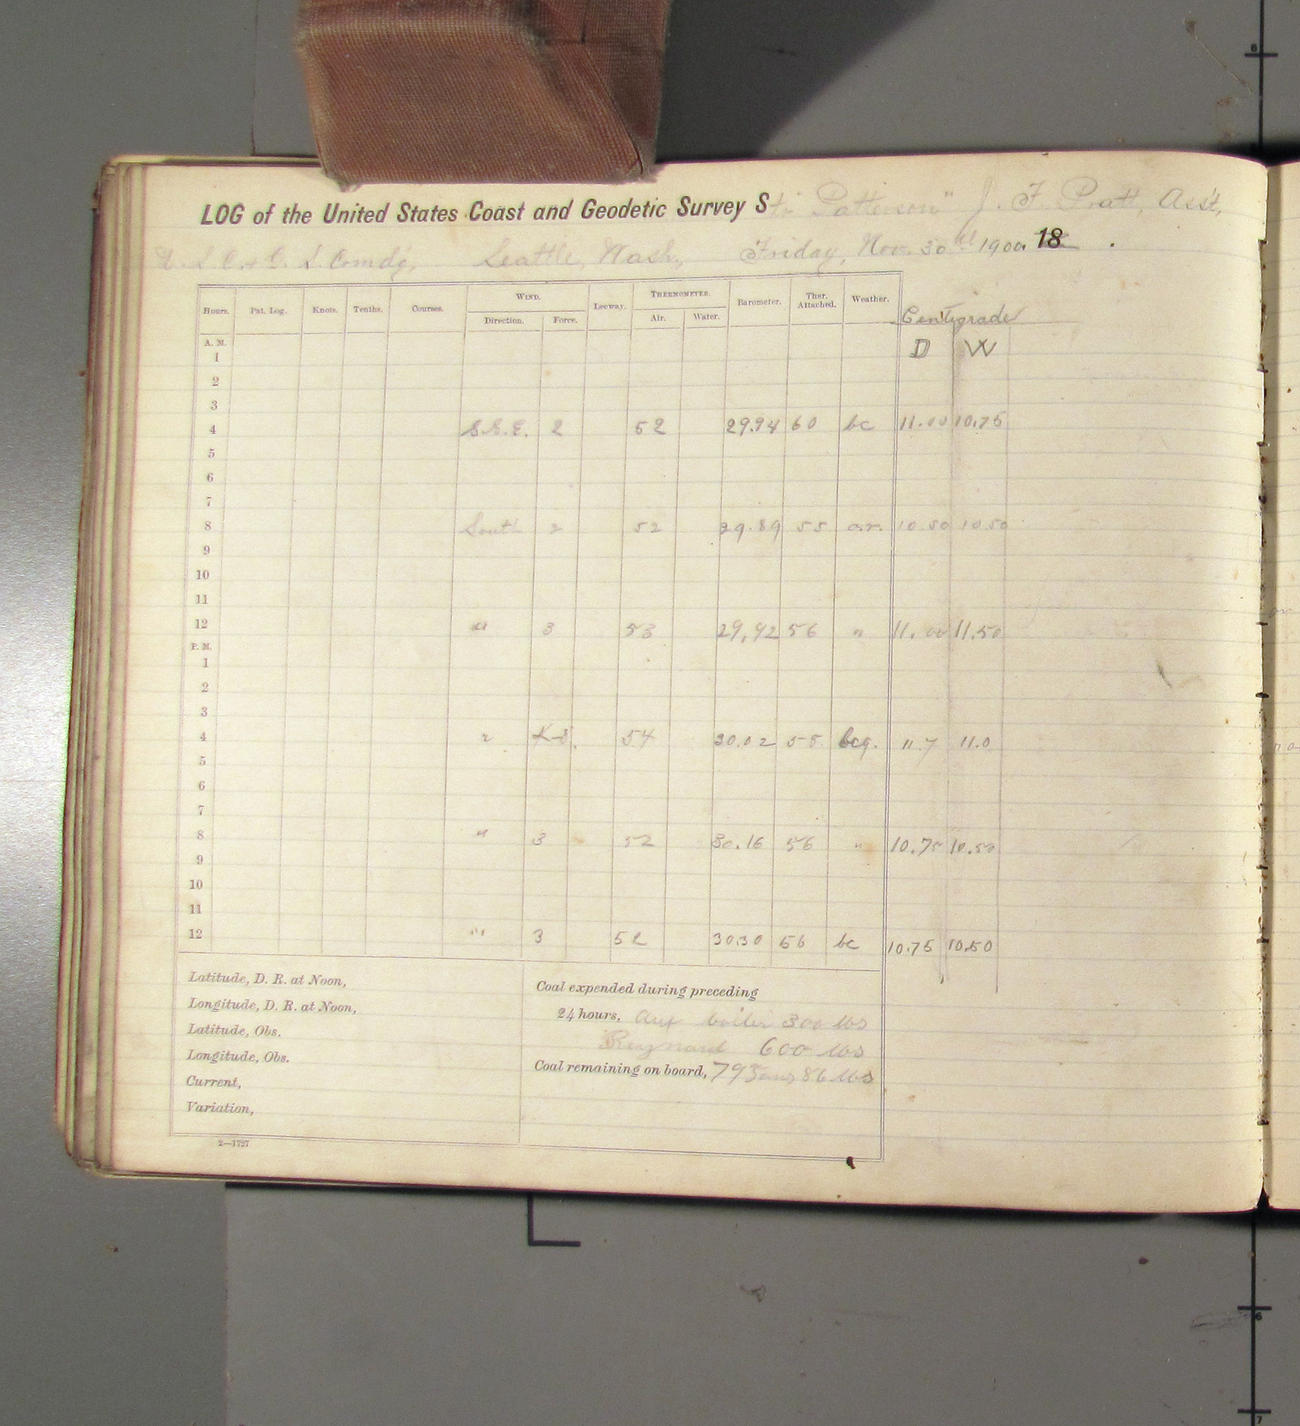 LOG of the United States Coast and Geodetic Survey Str "Patterson" J. F. Pratt, Ass't,
U. S. C. & G. S. Comd'g, Seattle, Wash., Friday, Nov. 30th 1900. 18
Hours. Pat. Log. Knots. Tenths. Courses. WIND. Leeway. THERMOMETER. Barometer. Ther. Attached. Weather.
Direction. Force. Air. Water. Centigrade
A. M. D W
1
2
3
4 S.S.E. 2 52 29.94 60 bc 11.00 10.75
5
6
7
8 South 2 52 29.89 55 o.r. 10.50 10.50
9
10
11
12 " 3 53 29.92 56 " 11.00 11.50
P. M.
1
2
3
4 " 54 30.02 55 bcq. 11.7 11.0
5
6
7
8 " 3 52 30.16 56 " 10.75 10.50
9
10
11
12 " 3 52 30.30 56 bc 10.75 10.50
Latitude, D. R. at Noon,
Longitude, D. R. at Noon,
Latitude, Obs.
Longitude, Obs.
Current,
Variation,
Coal expended during preceding
24 hours, Aux boiler 300 lbs
600 lbs
Coal remaining on board, 86 lbs
2—1727
8
6
7